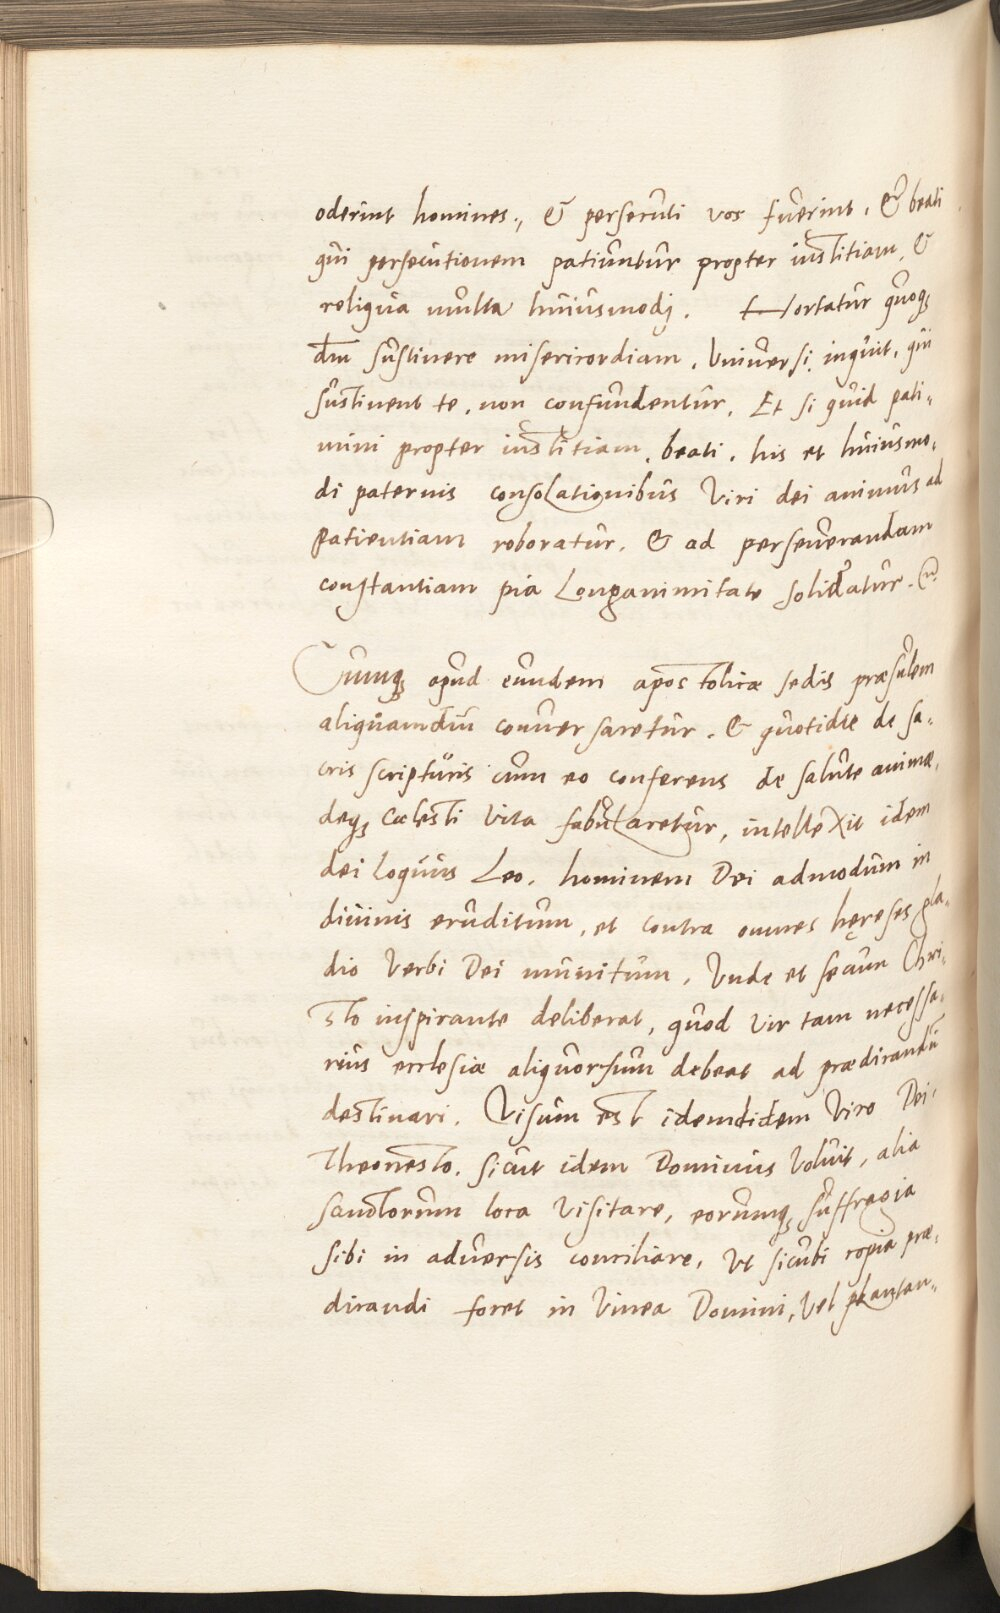 oderint homines., & persecuti vos fuerint, & beati
qui persecutionem patiuntur propter iustitiam, &
reliqua multa huiusmodj. Hortatur quoqꝫ
dm̄ sustinere misericordiam, Vniuersi, inquit, qui
sustinent te, non confundentur, Et si quid pati-
mini propter iustitiam, beati, his et huiusmo-
di paternis consolationibus Viri dei animus ad
patientiam roboratur, & ad perseuerandam
constantiam pia Longanimitate solidatur.
Cumqꝫ apud eundem apostolicæ sedis præsulem
aliquamdiu conuersaretur, & quotidie de sa-
cris scripturis cum eo conferens de salute animæ,
deqꝫ cœlesti vita fabularetur, intellexit idem
dei loquus Leo, hominem Dei admodum in
diuinis eruditum, et contra omnes hęreses gla-
dio Verbi Dei munitum, Vnde et secum Chri-
sto inspirante deliberat, quod Vir tam necessa-
rius ecclesiæ aliquorsum debeat ad prædicandū
destinari. Visum est idemdidem Viro Dei
Theonesto, sicut idem Dominus Voluit, alia
sanctorum loca Visitare, eorumqꝫ suffragia
sibi in aduersis conciliare, Vt sicubi copia præ-
dicandi foret in Vinea Domini, Vel plantan-